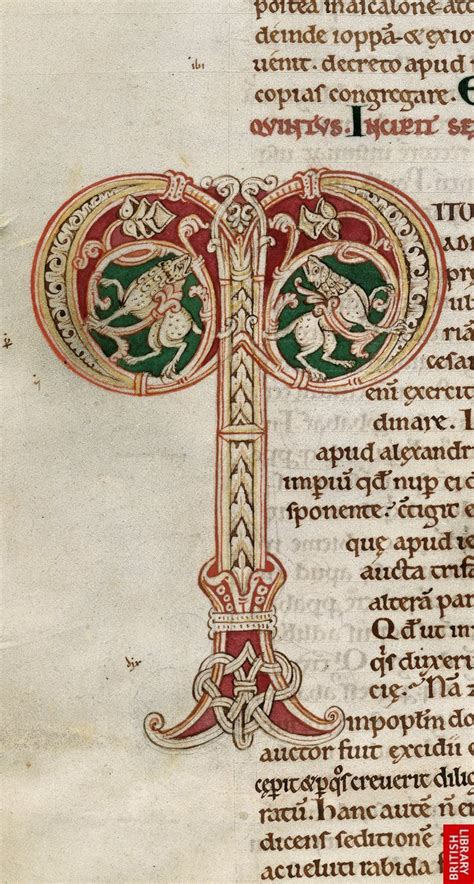 poitea inascalone·atc
deinde ioppā·& exio
uenit. decreto apud i
copias congregare. E
QVINTVS. INCIPIT SE
ITU
ABI
ria
cesar
enī exercit
dinare.
apud alexandr
imp̄iuū qd̄ nup ei d
sponente? c̄tigit e
quę apud ie
aucta trifa
alterā pat
Qd̄ ut im
q̄s dixeri
cię. Nā
inpoplm̄ do
auctor fuit excidii e
cęperit & p q̄s creuerit dilig
ratū. hanc autē n̄ en
dicens seditionē
acueluti rabida f
BRITISH
LIBRARY